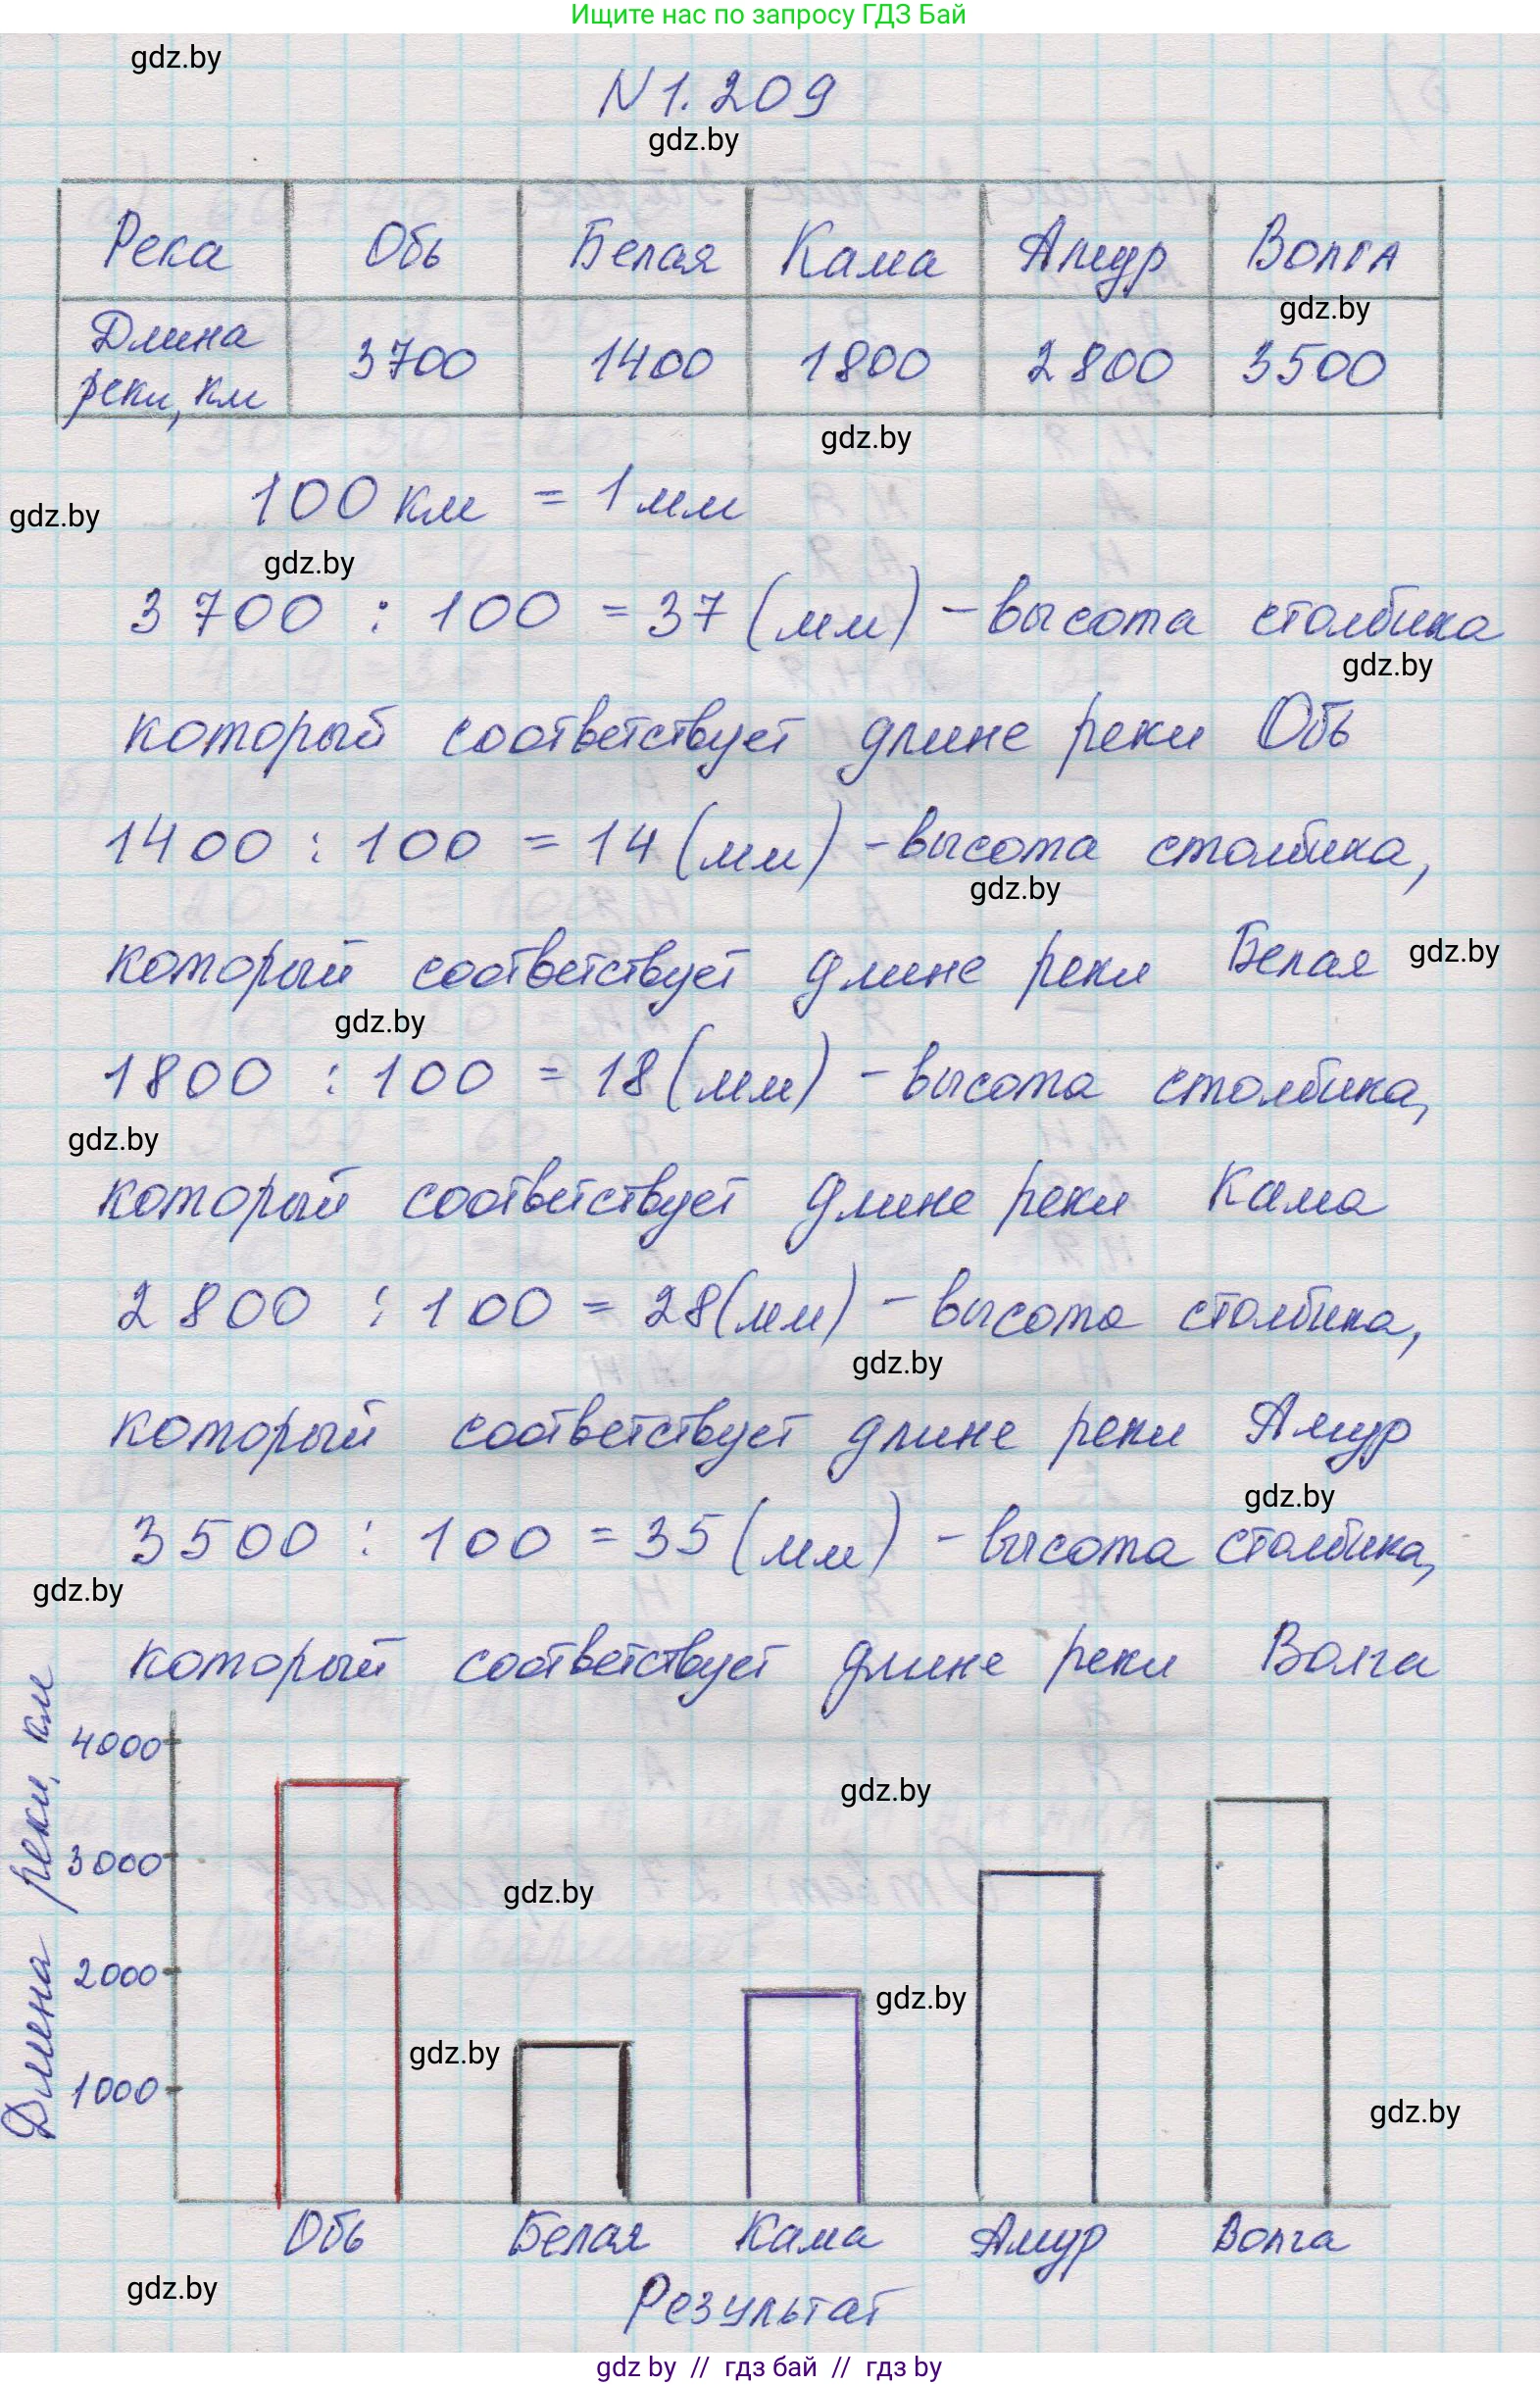 Ищите нас по запросу ГДЗ Бай
gdz.by
N 1.209
gdz.by
Река Обь Белая Кама Амур Волга
gdz.by
Длина реки, км 3700 1400 1800 2800 3500
gdz.by
100 км = 1 мм
gdz.by
gdz.by
3700 : 100 = 37 (мм) - высота столбика
gdz.by
который соответствует длине реки Обь
1400 : 100 = 14 (мм) - высота столбика,
gdz.by
который соответствует длине реки Белая
gdz.by
gdz.by
1800 : 100 = 18 (мм) - высота столбика,
gdz.by
который соответствует длине реки Кама
2800 : 100 = 28 (мм) - высота столбика,
gdz.by
который соответствует длине реки Амур
gdz.by
3500 : 100 = 35 (мм) - высота столбика,
gdz.by
который соответствует длине реки Волга
Длина реки, км
4000
gdz.by
3000
gdz.by
2000
gdz.by
gdz.by
1000
gdz.by
Обь Белая Кама Амур Волга
gdz.by
Результат
gdz by // гдз бай // гдз by